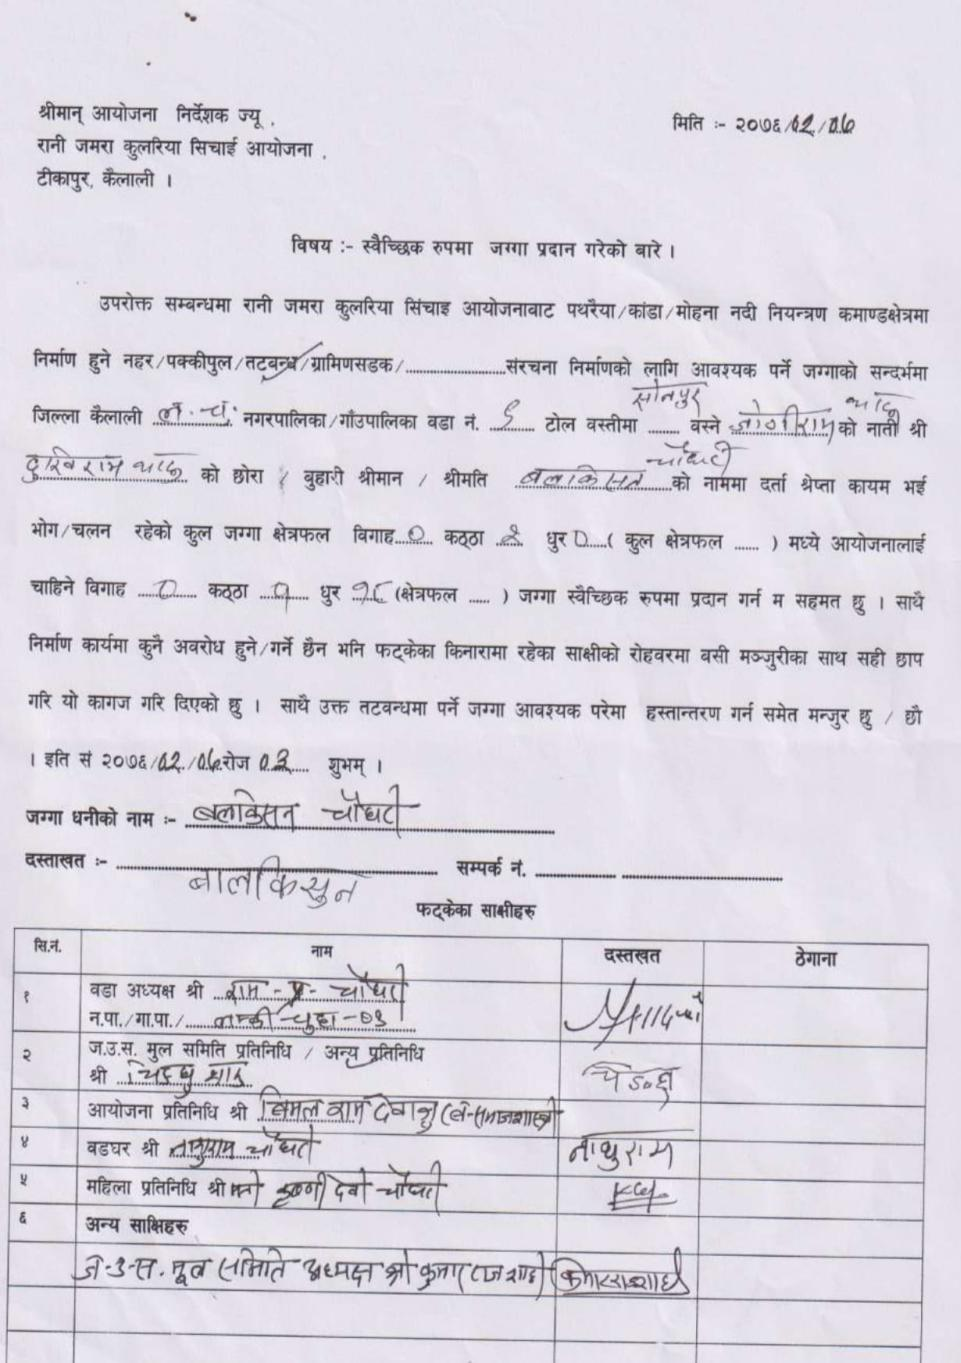 श्रीमान् आयोजना निर्देशक ज्यू .
मिति :- २०७६/०2/06
रानी जमरा कुलरिया सिचाई आयोजना .
टीकापुर, कैलाली ।
विषय :- स्वैच्छिक रुपमा जग्गा प्रदान गरेको बारे ।
उपरोक्त सम्बन्धमा रानी जमरा कुलरिया सिंचाइ आयोजनाबाट पथरैया/कांडा/मोहना नदी नियन्त्रण कमाण्डक्षेत्रमा
निर्माण हुने नहर/पक्कीपुल/तटबन्ध/ग्रामिणसडक/........................संरचना निर्माणको लागि आवश्यक पर्ने जग्गाको सन्दर्भमा
जिल्ला कैलाली ल.चु. नगरपालिका/गाँउपालिका वडा नं. टोल वस्तीमा सोनपुर वस्ने जोगीराम थारु को नाती श्री
दुखिराम थारु को छोरा / बुहारी श्रीमान / श्रीमति बलकिसन चौधरी को नाममा दर्ता श्रेप्ता कायम भई
भोग/चलन रहेको कुल जग्गा क्षेत्रफल विगाह 0 कठ्ठा २ धुर 0 ( कुल क्षेत्रफल ...... ) मध्ये आयोजनालाई
चाहिने विगाह 0 कठ्ठा १ धुर १८ (क्षेत्रफल ..... ) जग्गा स्वैच्छिक रुपमा प्रदान गर्न म सहमत छु । साथै
निर्माण कार्यमा कुनै अवरोध हुने/गर्ने छैन भनि फट्केका किनारामा रहेका साक्षीको रोहवरमा बसी मञ्जुरीका साथ सही छाप
गरि यो कागज गरि दिएको छु । साथै उक्त तटवन्धमा पर्ने जग्गा आवश्यक परेमा हस्तान्तरण गर्न समेत मन्जुर छु / छौ
। इति सं २०७६/02/06 रोज 03 शुभम् ।
जग्गा धनीको नाम :- बलकिसन चौधरी
दस्ताखत :- बालकिसुन सम्पर्क नं. ................ ................................
फट्केका साक्षीहरु
सि.नं. नाम दस्तखत ठेगाना
१ वडा अध्यक्ष श्री राम-प्र- चौधरी
न.पा./गा.पा./ लम्की-चुहा-०९
२ ज.उ.स. मुल समिति प्रतिनिधि / अन्य प्रतिनिधि
श्री
३ आयोजना प्रतिनिधि श्री बिमल वाम
४ वडघर श्री चौधरी नाथुराम
५ महिला प्रतिनिधि श्री कृष्णी देवी चौधरी
६ अन्य साक्षिहरु
ज-उ-स. मूल समिति अध्यक्ष श्री कुमार राज शाही